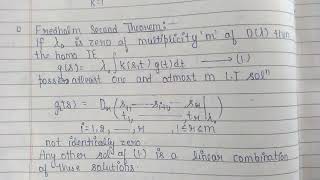 K=1
Fredholm Second Theorem:-
If λ₀ is zero of multiplicity 'm' of D(λ) then
the homo IE
g(s) = λ₀ ∫ k(s,t) g(t) dt → (1)
posses atleast one and atmost m L.I solⁿ
gᵢ(s) = Dᵣ
i=1,2, ..., r , 1≤r≤m
not identically zero.
Any other sol of (1.) is a linear combination
of these solutions.